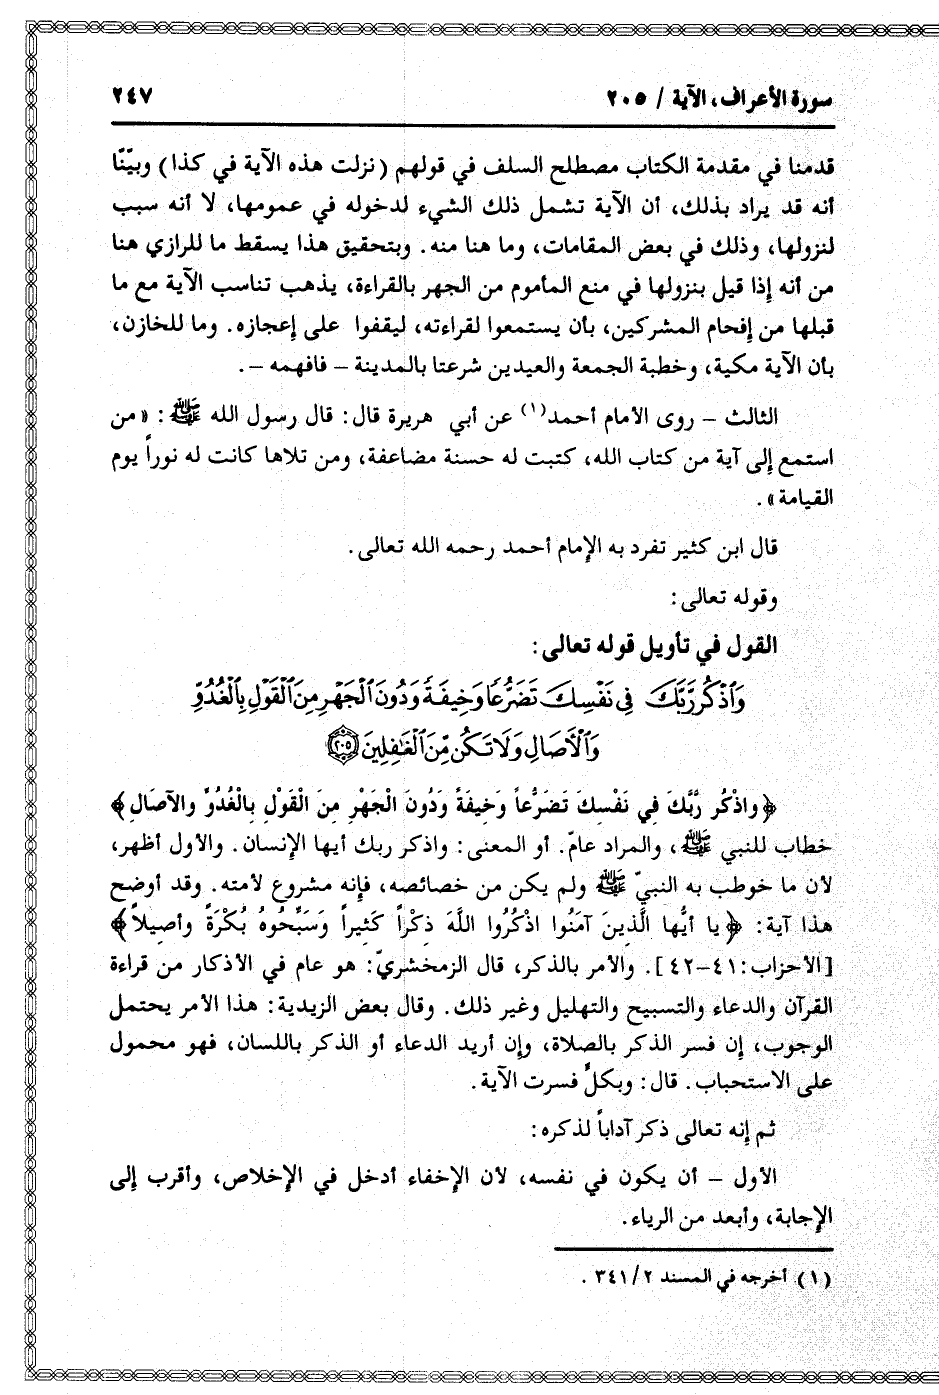 سورة الأعراف، الآية / ٢٠٥
٢٤٧
قدمنا في مقدمة الكتاب مصطلح السلف في قولهم (نزلت هذه الآية في كذا) وبيّنّا
أنه قد يراد بذلك، أن الآية تشمل ذلك الشيء لدخوله في عمومها، لا أنه سبب
لنزولها، وذلك في بعض المقامات، وما هنا منه. وبتحقيق هذا يسقط ما للرازي هنا
من أنه إذا قيل بنزولها في منع المأموم من الجهر بالقراءة، يذهب تناسب الآية مع ما
قبلها من إفحام المشركين، بأن يستمعوا لقراءته، ليقفوا على إعجازه. وما للخازن،
بأن الآية مكية، وخطبة الجمعة والعيدين شرعتا بالمدينة – فافهمه –.
الثالث – روى الأمام أحمد(١) عن أبي هريرة قال: قال رسول الله ﷺ: «من
استمع إلى آية من كتاب الله، كتبت له حسنة مضاعفة، ومن تلاها كانت له نوراً يوم
القيامة».
قال ابن كثير تفرد به الإمام أحمد رحمه الله تعالى.
وقوله تعالى:
القول في تأويل قوله تعالى:
وَٱذْكُر رَّبَّكَ فِي نَفْسِكَ تَضَرُّعًا وَخِيفَةً وَدُونَ ٱلْجَهْرِ مِنَ ٱلْقَوْلِ بِٱلْغُدُوِّ
وَٱلْأَصَالِ وَلَا تَكُن مِّنَ ٱلْغَٰفِلِينَ ٢٠٥
﴿واذْكُر رَّبَّكَ فِي نَفْسِكَ تَضَرُّعاً وَخِيفَةً وَدُونَ الْجَهْرِ مِنَ الْقَوْلِ بِالْغُدُوِّ والآصَالِ﴾
خطاب للنبي ﷺ، والمراد عامّ. أو المعنى: واذكر ربك أيها الإنسان. والأول أظهر،
لأن ما خوطب به النبيّ ﷺ ولم يكن من خصائصه، فإنه مشروع لأمته. وقد أوضح
هذا آية: ﴿يا أيُّها الَّذينَ آمَنُوا اذْكُرُوا اللَّهَ ذِكْراً كَثيراً وَسَبِّحُوهُ بُكْرَةً وأصيلاً﴾
[الأحزاب:٤١–٤٢]. والأمر بالذكر، قال الزمخشريّ: هو عام في الأذكار من قراءة
القرآن والدعاء والتسبيح والتهليل وغير ذلك. وقال بعض الزيدية: هذا الأمر يحتمل
الوجوب، إن فسر الذكر بالصلاة، وإن أريد الدعاء أو الذكر باللسان، فهو محمول
على الاستحباب. قال: وبكلٍّ فسرت الآية.
ثم إنه تعالى ذكر آداباً لذكره:
الأول – أن يكون في نفسه، لأن الإخفاء أدخل في الإخلاص، وأقرب إلى
الإجابة، وأبعد من الرياء.
(١) أخرجه في المسند ٢/ ٣٤١.